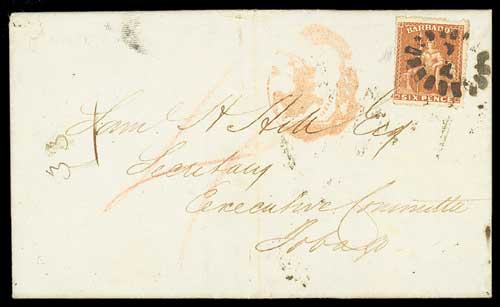 BARBADOS
SIX PENCE
Saml H Hill Esq
Secretary
Executive Committee
Tobago